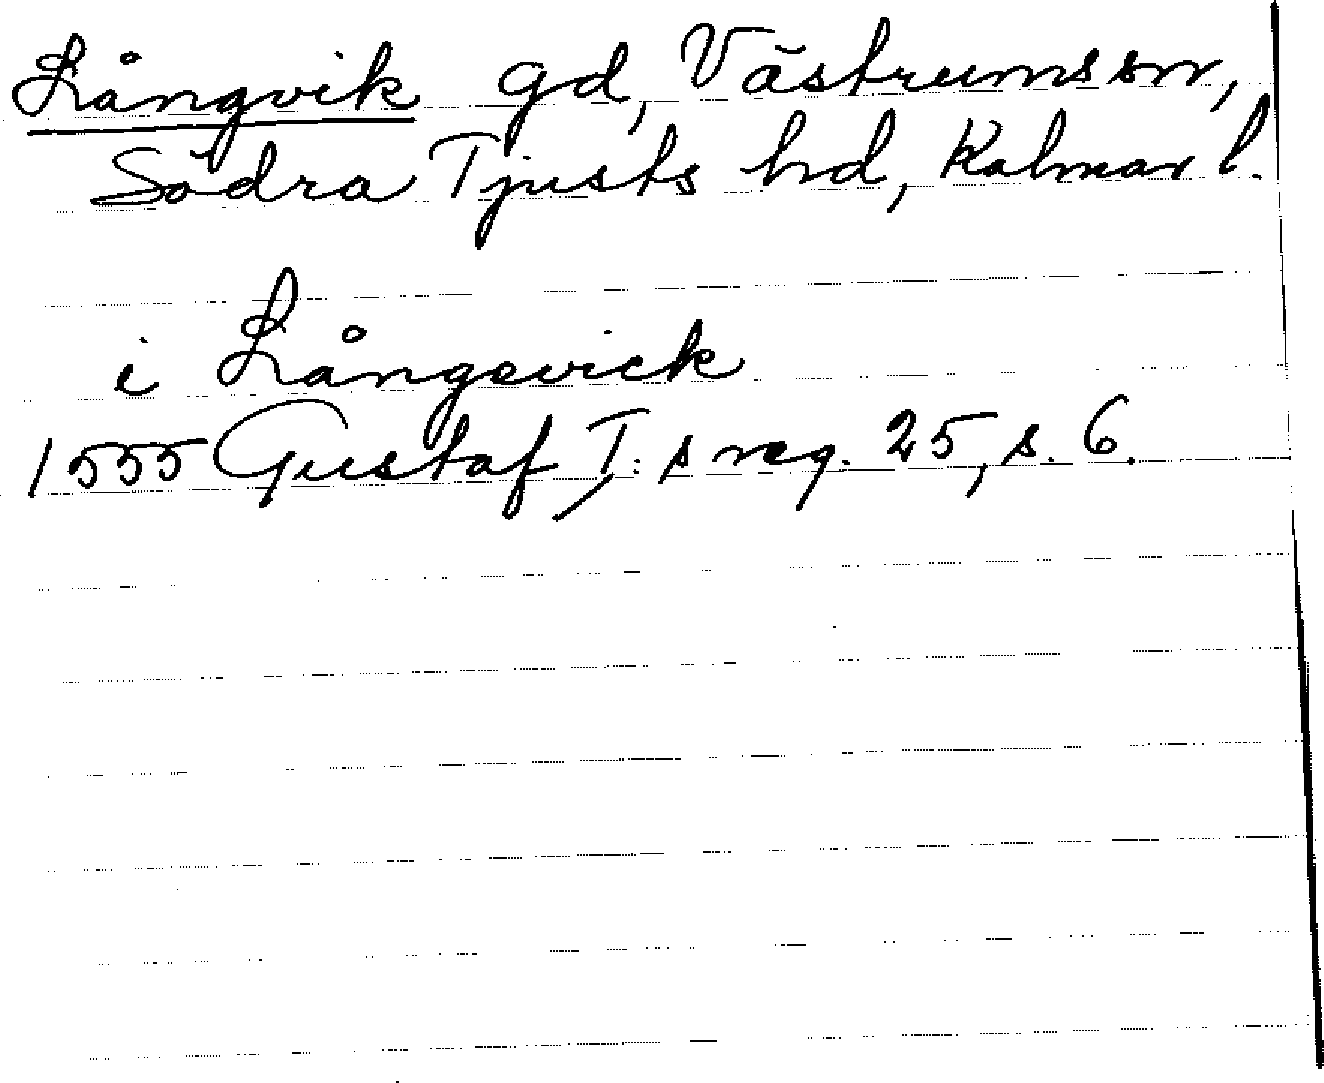 Långvik gd, Västrums sn,
Södra Tjusts hd, Kalmar l.
i Långevick
1555 Gustaf I:s reg. 25, s. 6.